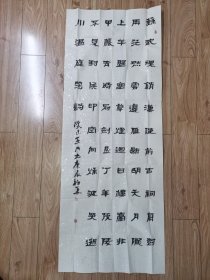 蘇武魂銷漢使前古祠高樹
兩茫然雲邊雁斷胡天月隴
上羊歸塞草煙迴日樓臺非
甲帳去時冠劍是丁年茂陵
不見封侯印空向秋波哭逝
川溫庭筠詩